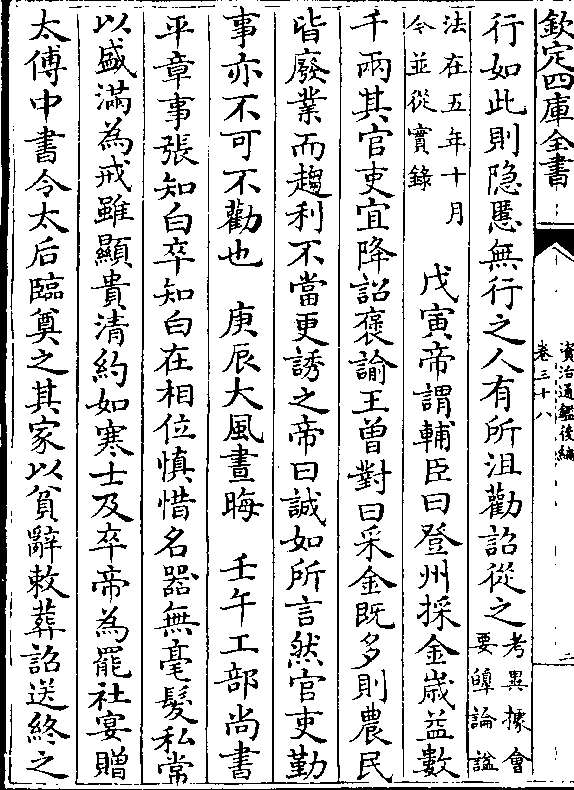 欽定四庫全書
資治通鑑後編
卷三十八
二
行如此則隐慝無行之人有所沮勸詔從之考異據會
要皥論諡
法在五年十月
今並從實錄
戊寅帝謂輔臣曰登州採金歲益數
千兩其官吏宜降詔褒諭王曾對曰采金既多則農民
皆廢業而趨利不當更誘之帝曰誠如所言然官吏勤
事亦不可不勸也　庚辰大風晝晦　壬午工部尚書
平章事張知白卒知白在相位慎惜名器無毫髮私常
以盛滿為戒雖顯貴清約如寒士及卒帝為罷社宴贈
太傅中書令太后臨奠之其家以貧辭敕葬詔送終之